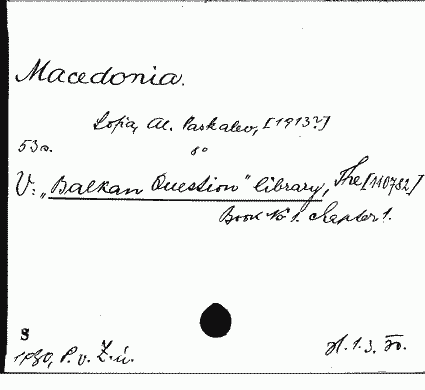 Macedonia.
Sofia, Al. Paskalev, [1913?]
53 s. 8°
V: „Balkan Question" library, The [110782]
Book No 1. Chapter 1.
S
1980, P. v. Z. ú.
H. 1. 3.